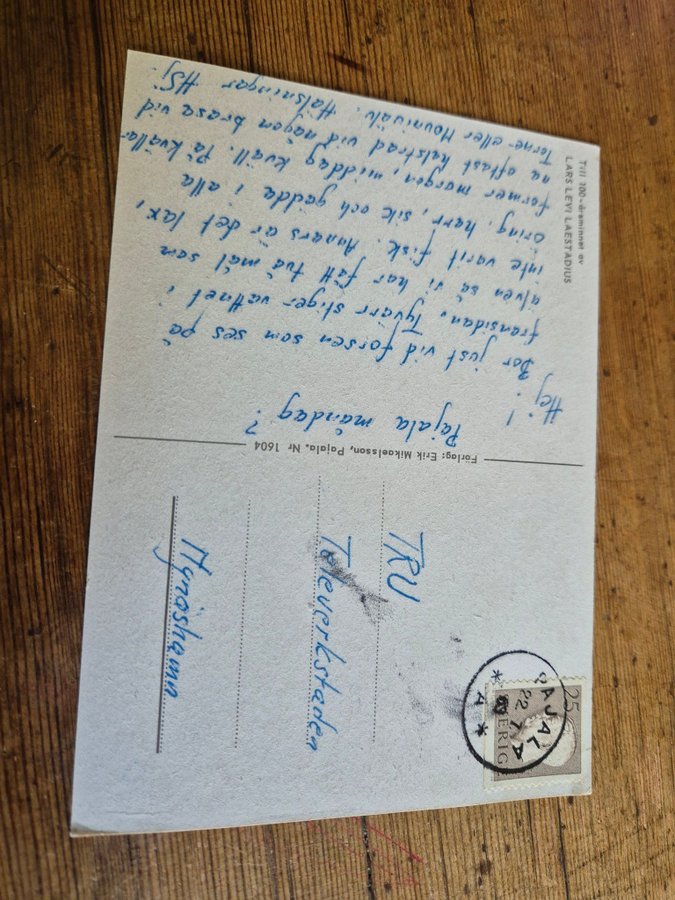 Till 100-årsminnet av
LARS LEVI LAESTADIUS
Pajala måndag?
Hej!
Bor just vid forsen som ses på
framsidan. Tyvärr stiger vattnet i
älven så vi har fått två mål som
inte varit fisk. Annars är det lax,
öring, harr, sik och gädda i alla
former morgon, middag kväll. På kvällar-
na oftast halstrad vid någon brasa vid
Torne- eller Hälsningar HSj.
Förlag: Erik Mikaelsson, Pajala. Nr 1604
PAJALA
22 7
* A *
25
SVERIGE
TRV
Televerkstaden
Nynäshamn